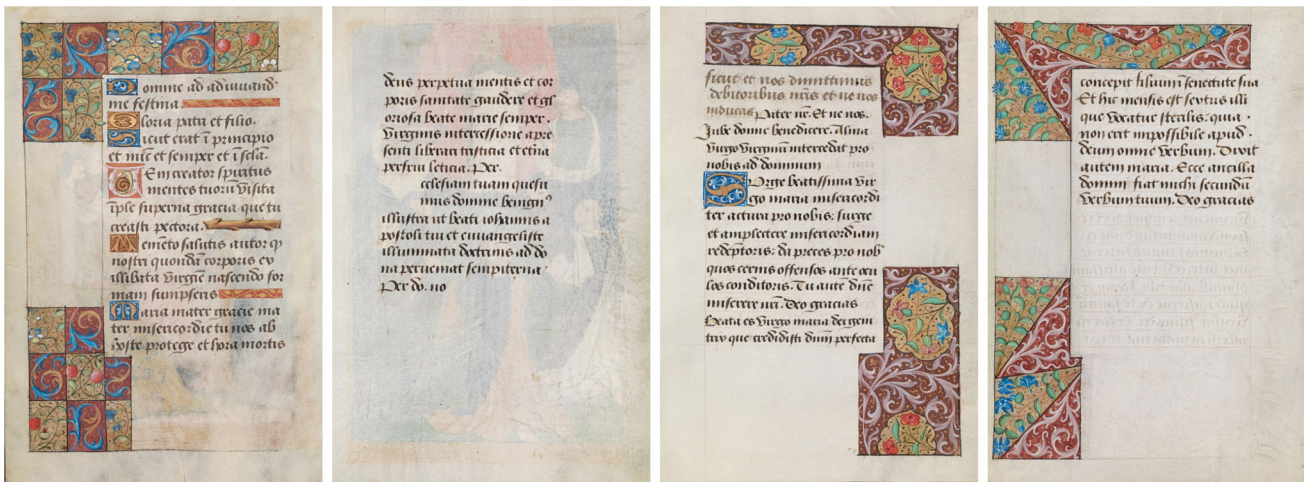 Domine ad adiuuand
me festina
Gloria patri et filio.
Sicut erat ī principio
et nūc et semper et ī scla.
Veni creator spiritus
mentes tuorū visita
iple superna gracia que tu
creasti pectora.
Memēto salutis autor q̄
nostri quondā corporis ex
illibata virgīe nascendo for
mam sumpseris
Maria mater gracie ma
ter misericordie tu nos ab
hoste protege et hora mortis
deus perpetua mentis et cor
poris sanitate gaudere et gl
oriosa beate marie semper.
Virginis intercessione apre
senti liberari tristicia et et̄na
perfrui leticia. Per.
celesiam tuam quesu
mus domine benign⁹
illustra ut beati iohannis a
postoli tui et euuangeliste
illuminata doctrinis ad do
na perueniat sempiterna.
Per do. no
sicut et nos dimittimus
debitoribus nr̄is et ne nos
inducas Pater nr̄. Et ne nos.
Iube domne benedicere. Alma
virgo virginū intercedat pro
nobis ad dominum
Surge beatissima vir
go maria misericordi
ter actura pro nobis: surge
et amplectere misericordiam
redēptoris: da preces pro nob
quos cernis offensos ante ocu
los conditoris. Tu autē dn̄e
miserere nr̄i. Deo gracias
Beata es virgo maria dei geni
trix que credidisti dn̄m perfecta
concepit filium ī senectute sua
Et hic mensis est sextus illi
que vocatur sterilis: quia
non erit impossibile apud
deum omne verbum. Dixit
autem maria. Ecce ancilla
domini fiat michi secundū
verbum tuum. Deo gracias